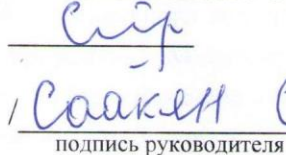 / Саакян (
подпись руководителя